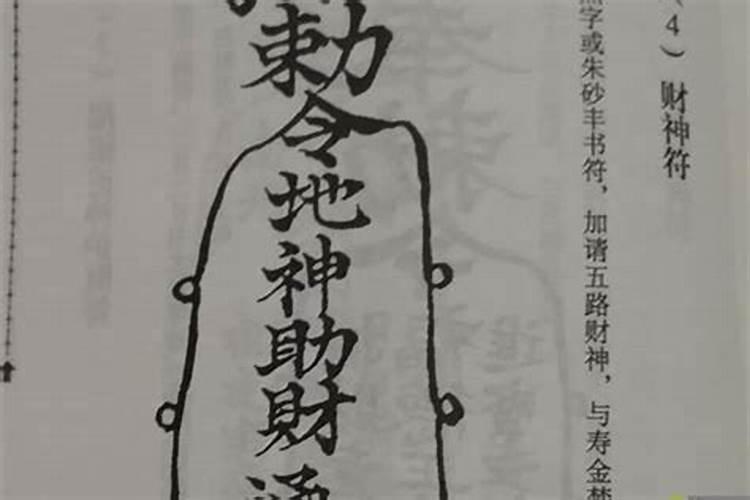 (4)财神符
字或朱砂丰书符，加请五路财神，与寿金
敕令地神助財